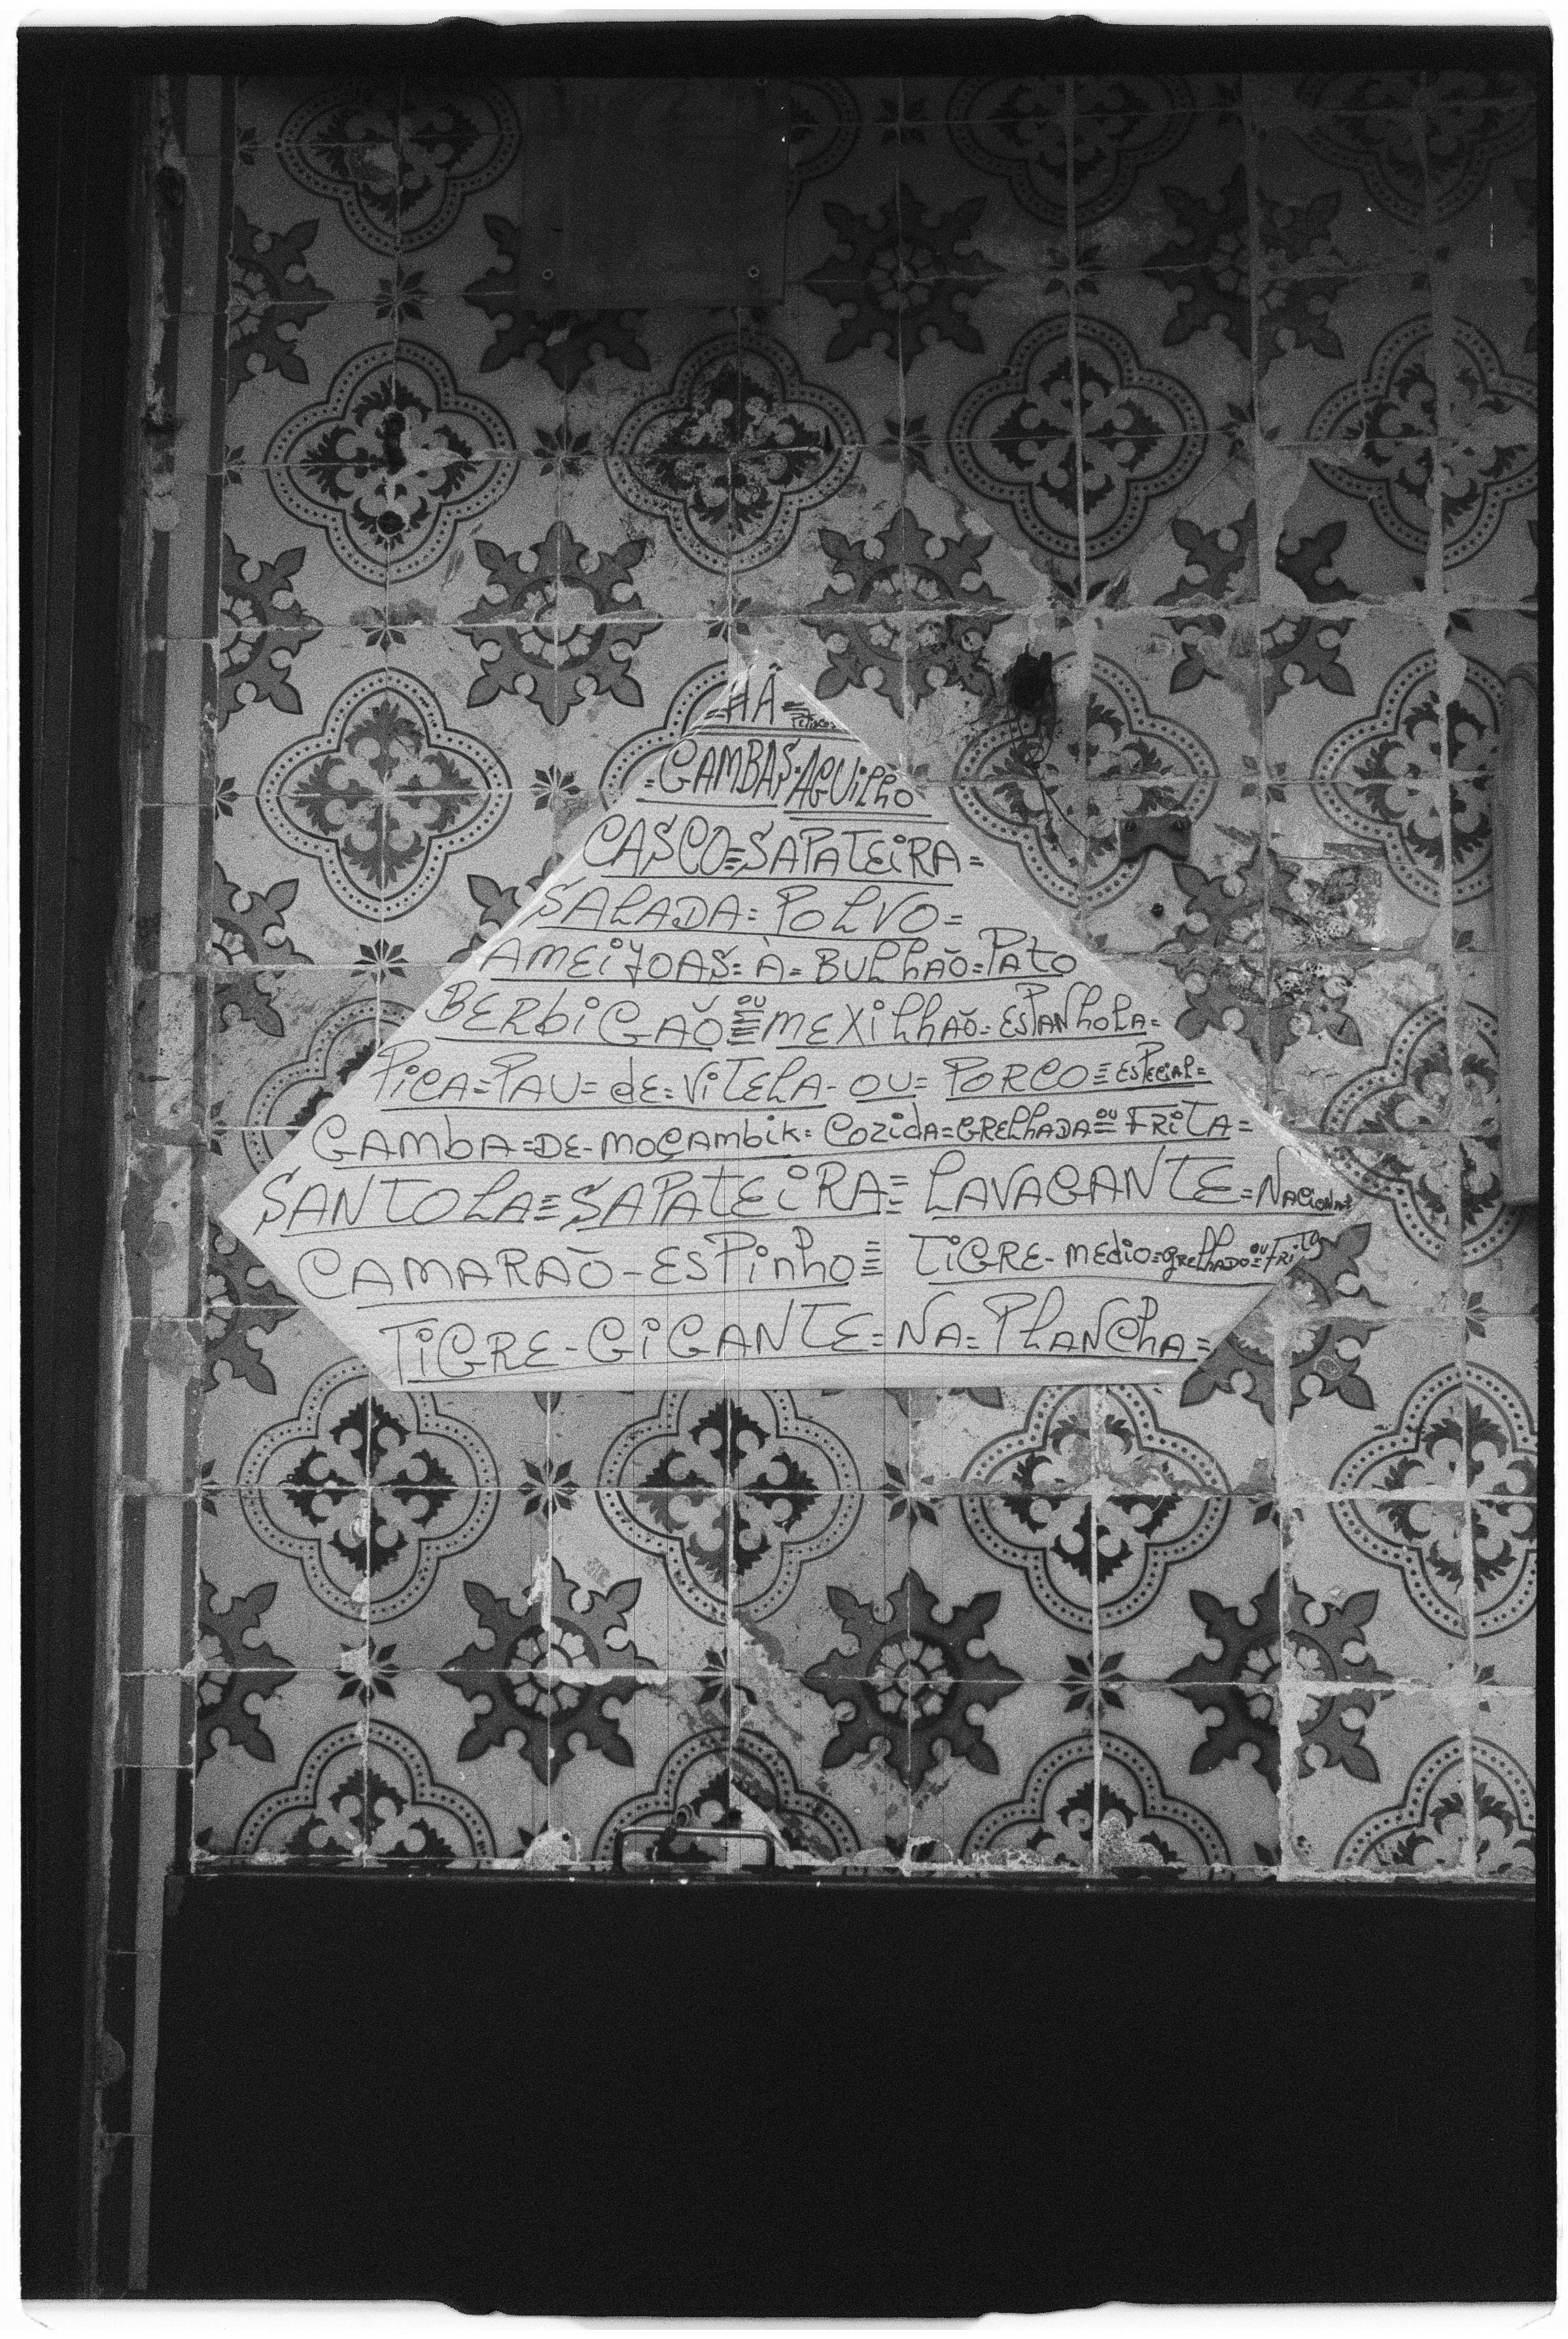 =HÁ= Petiscos
=GAMBAS·AGUILHO
CASCO=SAPATEIRA=
SALADA=POLVO=
AMEIJOAS=À=BULHÃO=PATO
BERBIGÃO≡OU≡MEXILHÃO=ESPANHOLA=
PICA=PAU=dE=VITELA-OU=PORCO≡ESPECIAL=
GAMBA=DE-MOÇAMBIK=COZIDA=GRELHADA=OU=FRITA=
SANTOLA≡SAPATEIRA≡LAVAGANTE=NACIONAL
CAMARÃO-ESPINHO≡ TIGRE-MEDIO=GRELHADO=OU=FRITO
TIGRE-GIGANTE=NA=PLANCHA=